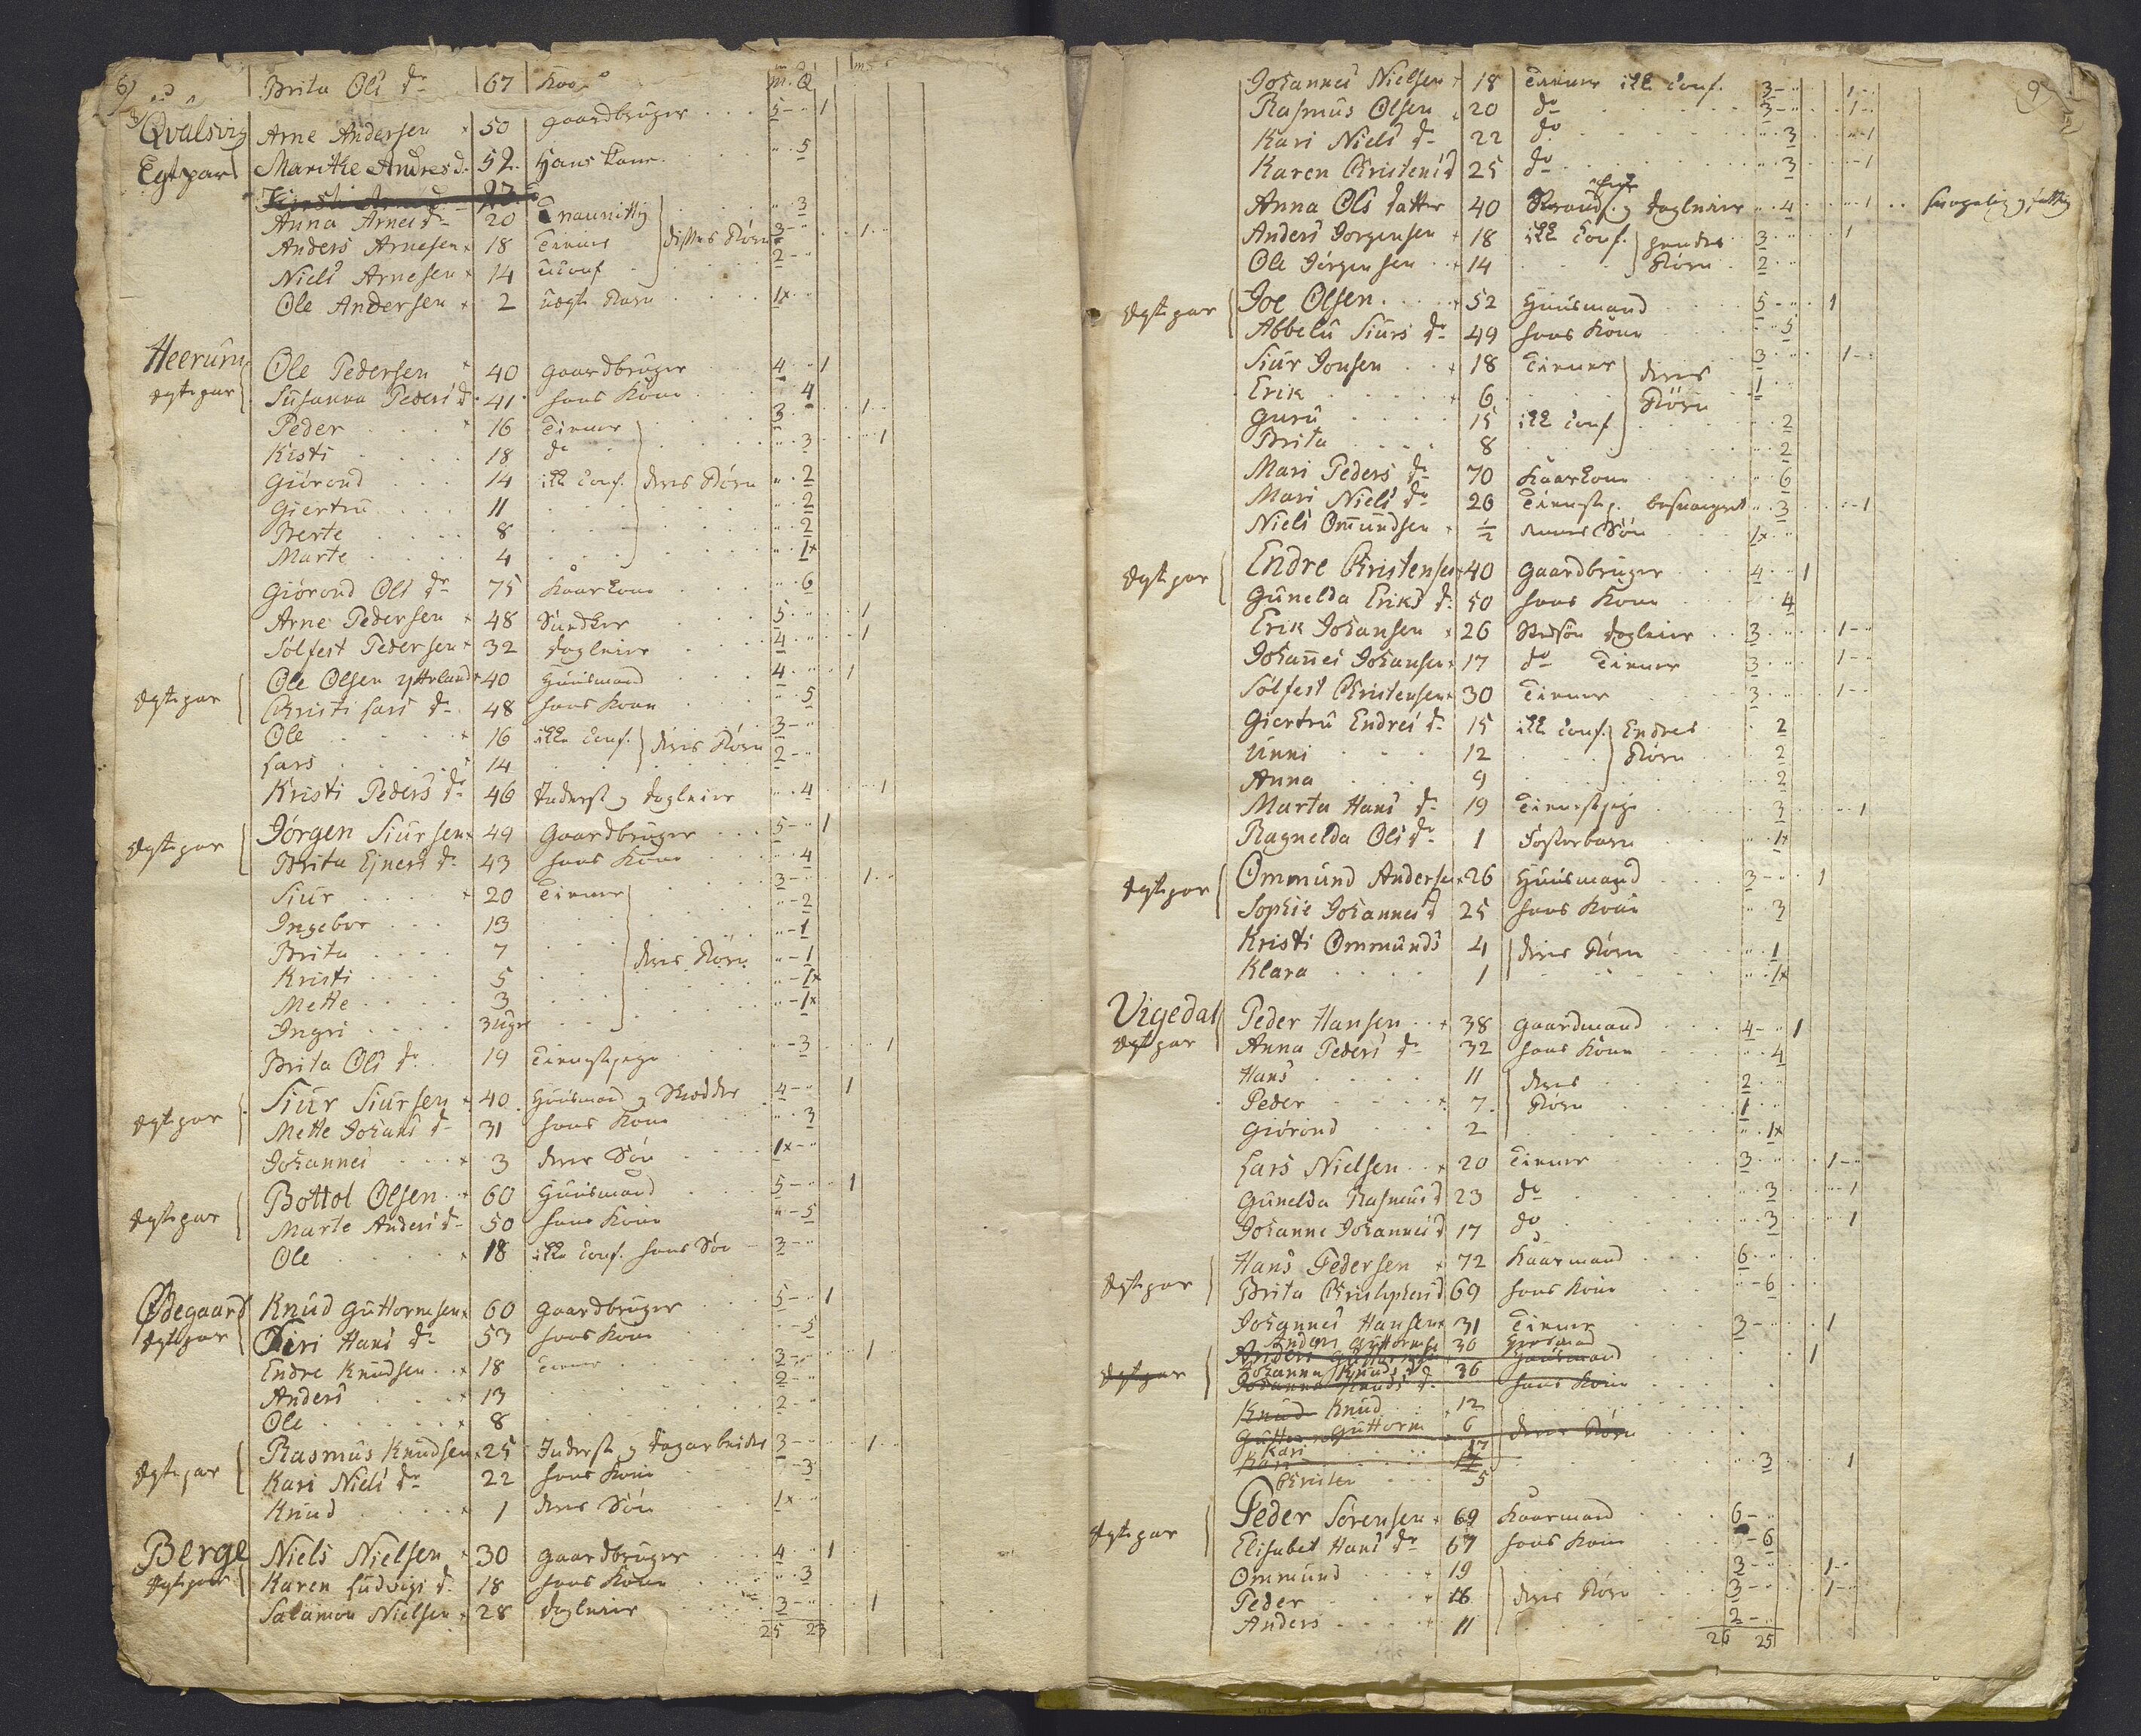 Brita Ols dr 67 Kaar m. Q
Qvalsvig Arne Andersen 50 gaardbruger 5 1
Egtepar Marithe Andresd. 52 Hans kone 5
Anna Arnes dr 20 3
Anders Arnesen 18 Tiener disses Børn 3 1
Niels Arnesen 14 uconf 2
Ole Andersen 2 uægte Barn 1x
Heerum Ole Pedersen 40 gaardbruger 4 1
Egtepar Susanna Peders d 41 hans Kone 4
Peder 16 Tiener 3 1
Kisti 18 do 3 1
Giórond 14 ikke Conf. deres Børn 2
Giertru 11 2
Berte 8 2
Marte 4 1x
Giórond Ols dr 75 Kaarkone 6
Arne Pedersen 48 5 1
Sólfest Pedersen 32 dagleier 4 1
Ole Olsen ytterland 40 Huusmand 4 1
Egtepar Christi Lars dr 48 hans Kone 5
Ole 16 ikke Conf. deres Børn 3
Lars 14 2
Kristi Peders dr 46 Inderst og dagleier 4 1
Egtepar Jórgen Siursen 49 Gaardbruger 5 1
Brita Ejners dr 43 hans Kone 4
Siur 20 Tiener 3 1
Ingebor 13 2
Brita 7 deres Børn 1
Kristi 5 1
Mette 3 1x
Ingri 3 uger 1x
Brita Ols dr 19 Tienestepige 3 1
Egtepar Siur Siursen 40 Huusmand og Skrædder 4 1
Mette Johans dr 31 hans Kone 3
Johannes 3 deres Søn 1x
Egtepar Bottol Olsen 60 Huusmand 5 1
Marte Anders dr 50 hans Kone 5
Ole 18 ikke Conf. hans Søn 3
Ødegaard Knud Guttormsen 60 gaardbruger 5 1
Egtepar Siri Hans dr 53 hans Kone 5
Endre Knudsen 18 Tiener 3 1
Anders 13 2
Ole 8 2
Egtepar Rasmus Knudsen 25 Inderst og dagarbeider 3 1
Kari Niels dr 22 hans Kone 3
Knud 1 deres Søn 1x
Berge Niels Nielsen 30 gaardbruger 4 1
Egtepar Karen Ludvigs d. 18 hans Kone 3
Salamon Nielsen 28 dagleier 3 1
25 23
9
Johannes Nielsen 18 Tiener ikke Conf. 3 1
Rasmus Olsen 20 do 3 1
Kari Niels dr 22 do 3 1
Karen Christens d 25 do 3 1
Anna Ols datter 40 og dagleier 4 1
Anders Jorgensen 18 ikke Conf. hendes 3 1
Ole Jórgensen 14 Børn 2
Egtepar Joe Olsen 52 Huusmand 5 1
Abbelu Siurs dr 49 hans Kone 5
Siur Jonsen 18 Tiener deres 3 1
Erik 6 Børn 1
Guru 15 ikke Conf 2
Brita 8 2
Mari Peders dr 70 Kaarkone 6
Mari Niels dr 26 Tienestep. besvangret 3 1
Niels Omundsen ½ hennes Søn 1x
Egtepar Endre Christensen 40 gaardbruger 4 1
Gunelda Eriks d. 50 hans Kone 4
Erik Johansen 26 Stedsøn dagleier 3 1
Johannes Johansen 17 do Tiener 3 1
Sólfest Christensen 30 Tiener 3 1
Giertru Endres dr 15 ikke Conf. Endres 2
Unni 12 Børn 2
Anna 9 2
Marta Hans dr 19 Tienestepige 3 1
Ragnelda Ols dr 1 Fosterbarn 1x
Egtepar Ommund Andersen 26 Huusmand 3 1
Sophie Johannes d 25 hans Kone 3
Kristi Ommunds 4 deres Børn 1
Klara 1 1x
Vigedal Peder Hansen 38 gaardmand 4 1
Egtepar Anna Peders dr 32 hans Kone 4
Hans 11 deres 2
Peder 7 Børn 1
Giórond 2 1x
Lars Nielsen 20 Tiener 3 1
Gunelda Rasmus d 23 do 3 1
Johanne Johannes d 17 do 3 1
Egtepar Hans Pedersen 72 Kaarmand 6
Brita Christophers d 69 hans Kone 6
Johannes Hansen 31 Tiener 3 1
Anders Guttormsen 36 Huusmand 1
Egtepar Johanna Knuds dr 36 hans Kone
Knud Knud 12
Guttorm 6 deres Børn
Kari 17 3 1
5
Egtepar Peder Sórensen 69 Kaarmand 6
Elisabet Hans dr 67 hans Kone 6
Ommund 19 3 1
Peder 16 deres Børn 3 1
Anders 11 2
26 25